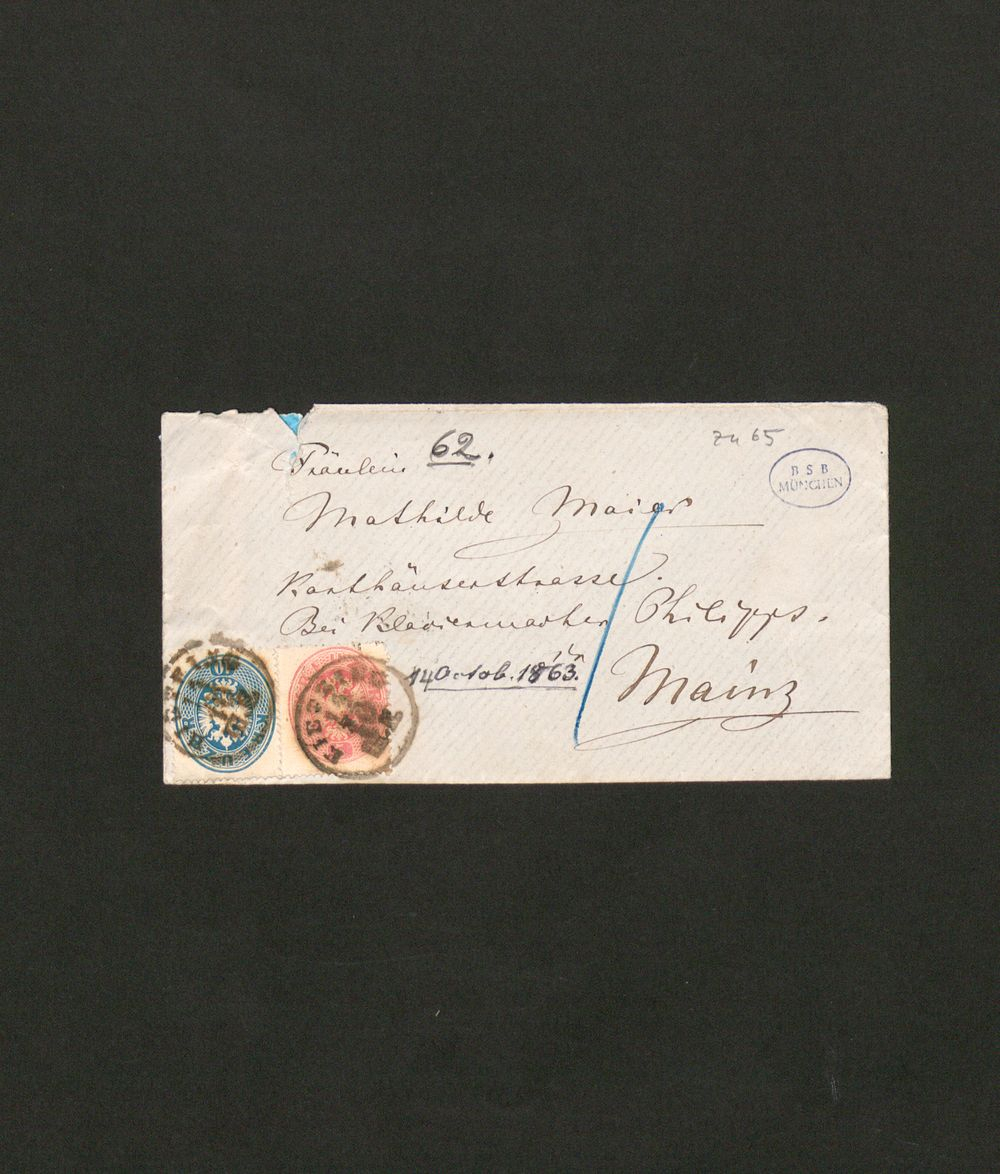 62.
zu 65
B S B
MÜNCHEN
Fräulein
Mathilde Maier
Karthäuserstrasse.
Bei Klaviermacher Philipps.
14 Octob. 1863.
Mainz
10